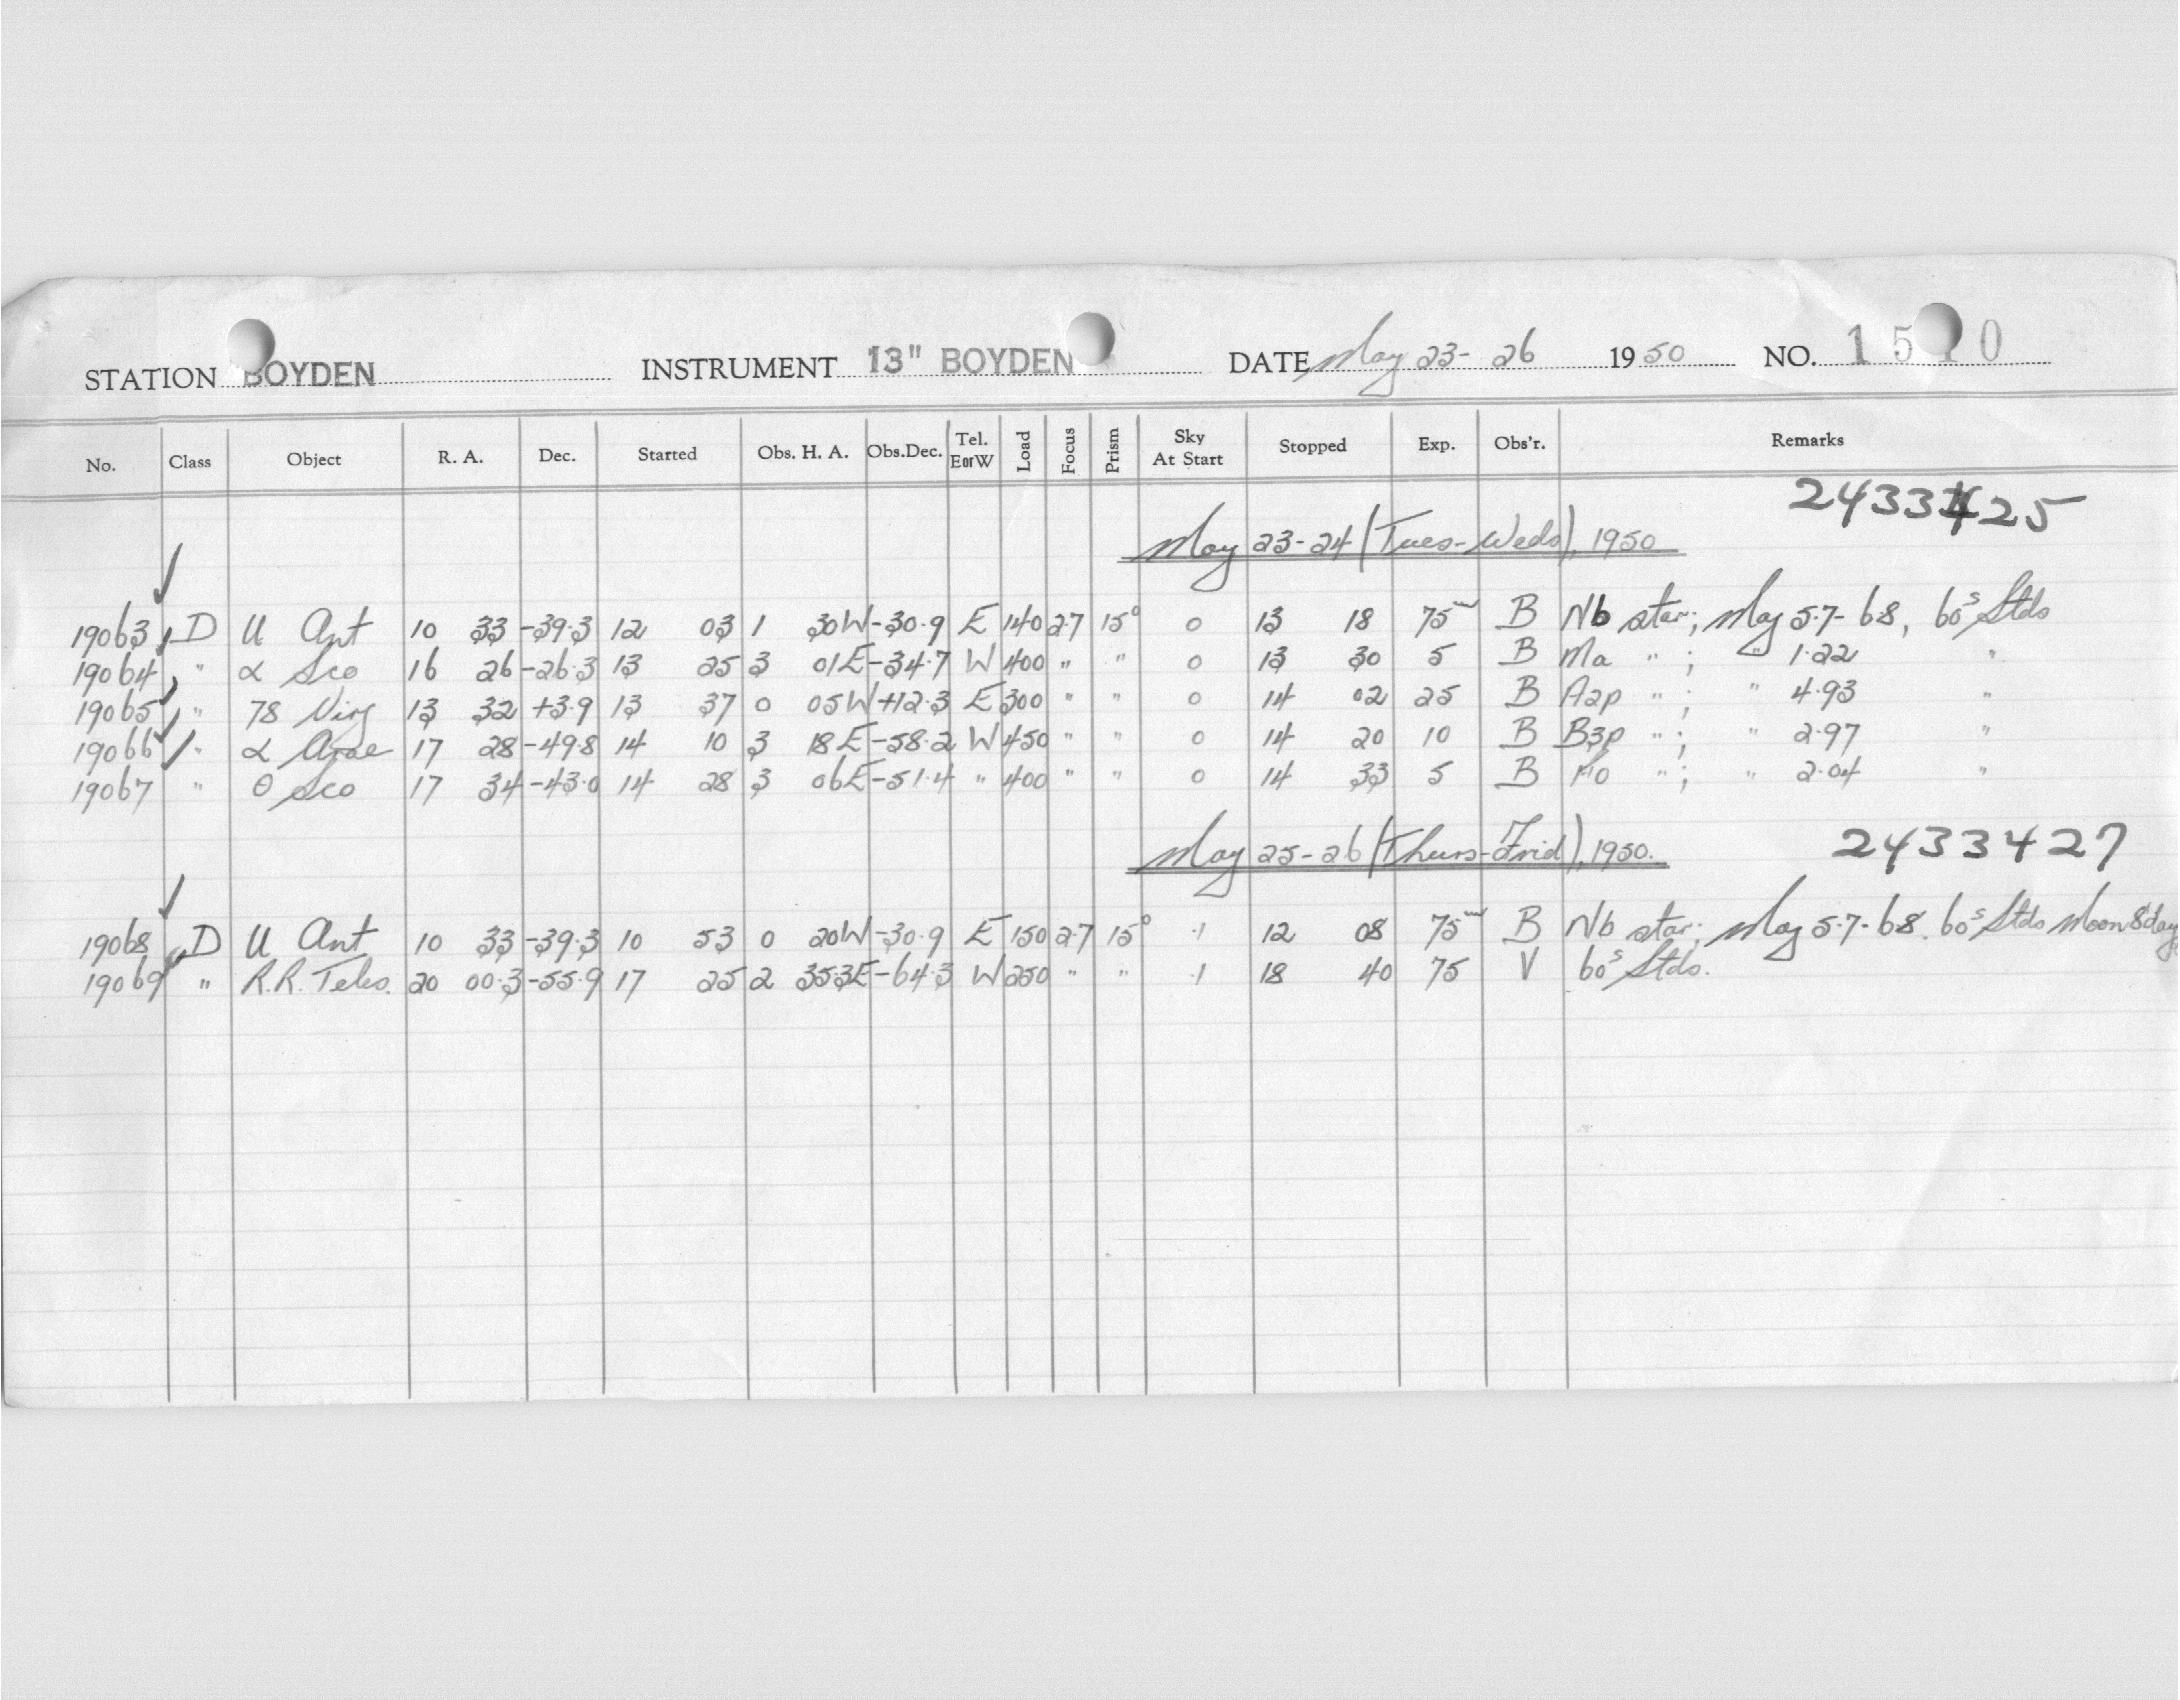 STATION BOYDEN INSTRUMENT 13" BOYDEN DATE May 23- 26 1950 NO. 15 0
No. Class Object R. A. Dec. Started Obs. H. A. Obs.Dec. Tel. EorW Load Focus Prism Sky At Start Stopped Exp. Obs'r. Remarks
2433425
May 23-24 (Tues-Weds), 1950
19063 D U Ant 10 33 -39.3 12 03 1 30W -30.9 E 140 2.7 15° 0 13 18 75m B Nb star; Mag 5.7-6.8, 60s Stds
19064 " α Sco 16 26 -26.3 13 25 3 01E -34.7 W 400 " " 0 13 30 5 B Ma " ; " 1.22 "
19065 " 78 Virg 13 32 +3.9 13 37 0 05W +12.3 E 300 " " 0 14 02 25 B A2p " ; " 4.93 "
19066 " α Arae 17 28 -49.8 14 10 3 18E -58.2 W 450 " " 0 14 20 10 B B3p " ; " 2.97 "
19067 " θ Sco 17 34 -43.0 14 28 3 06E -51.4 " 400 " " 0 14 33 5 B F0 " ; " 2.04 "
May 25-26 (Thurs-Frid), 1950. 2433427
19068 D U Ant 10 33 -39.3 10 53 0 20W -30.9 E 150 2.7 15° .1 12 08 75m B Nb star; Mag 5.7-6.8. 60s Stds Moon 8 days
19069 " R.R. Teles. 20 00.3 -55.9 17 25 2 35.3E -64.3 W 250 " " .1 18 40 75 V 60s Stds.